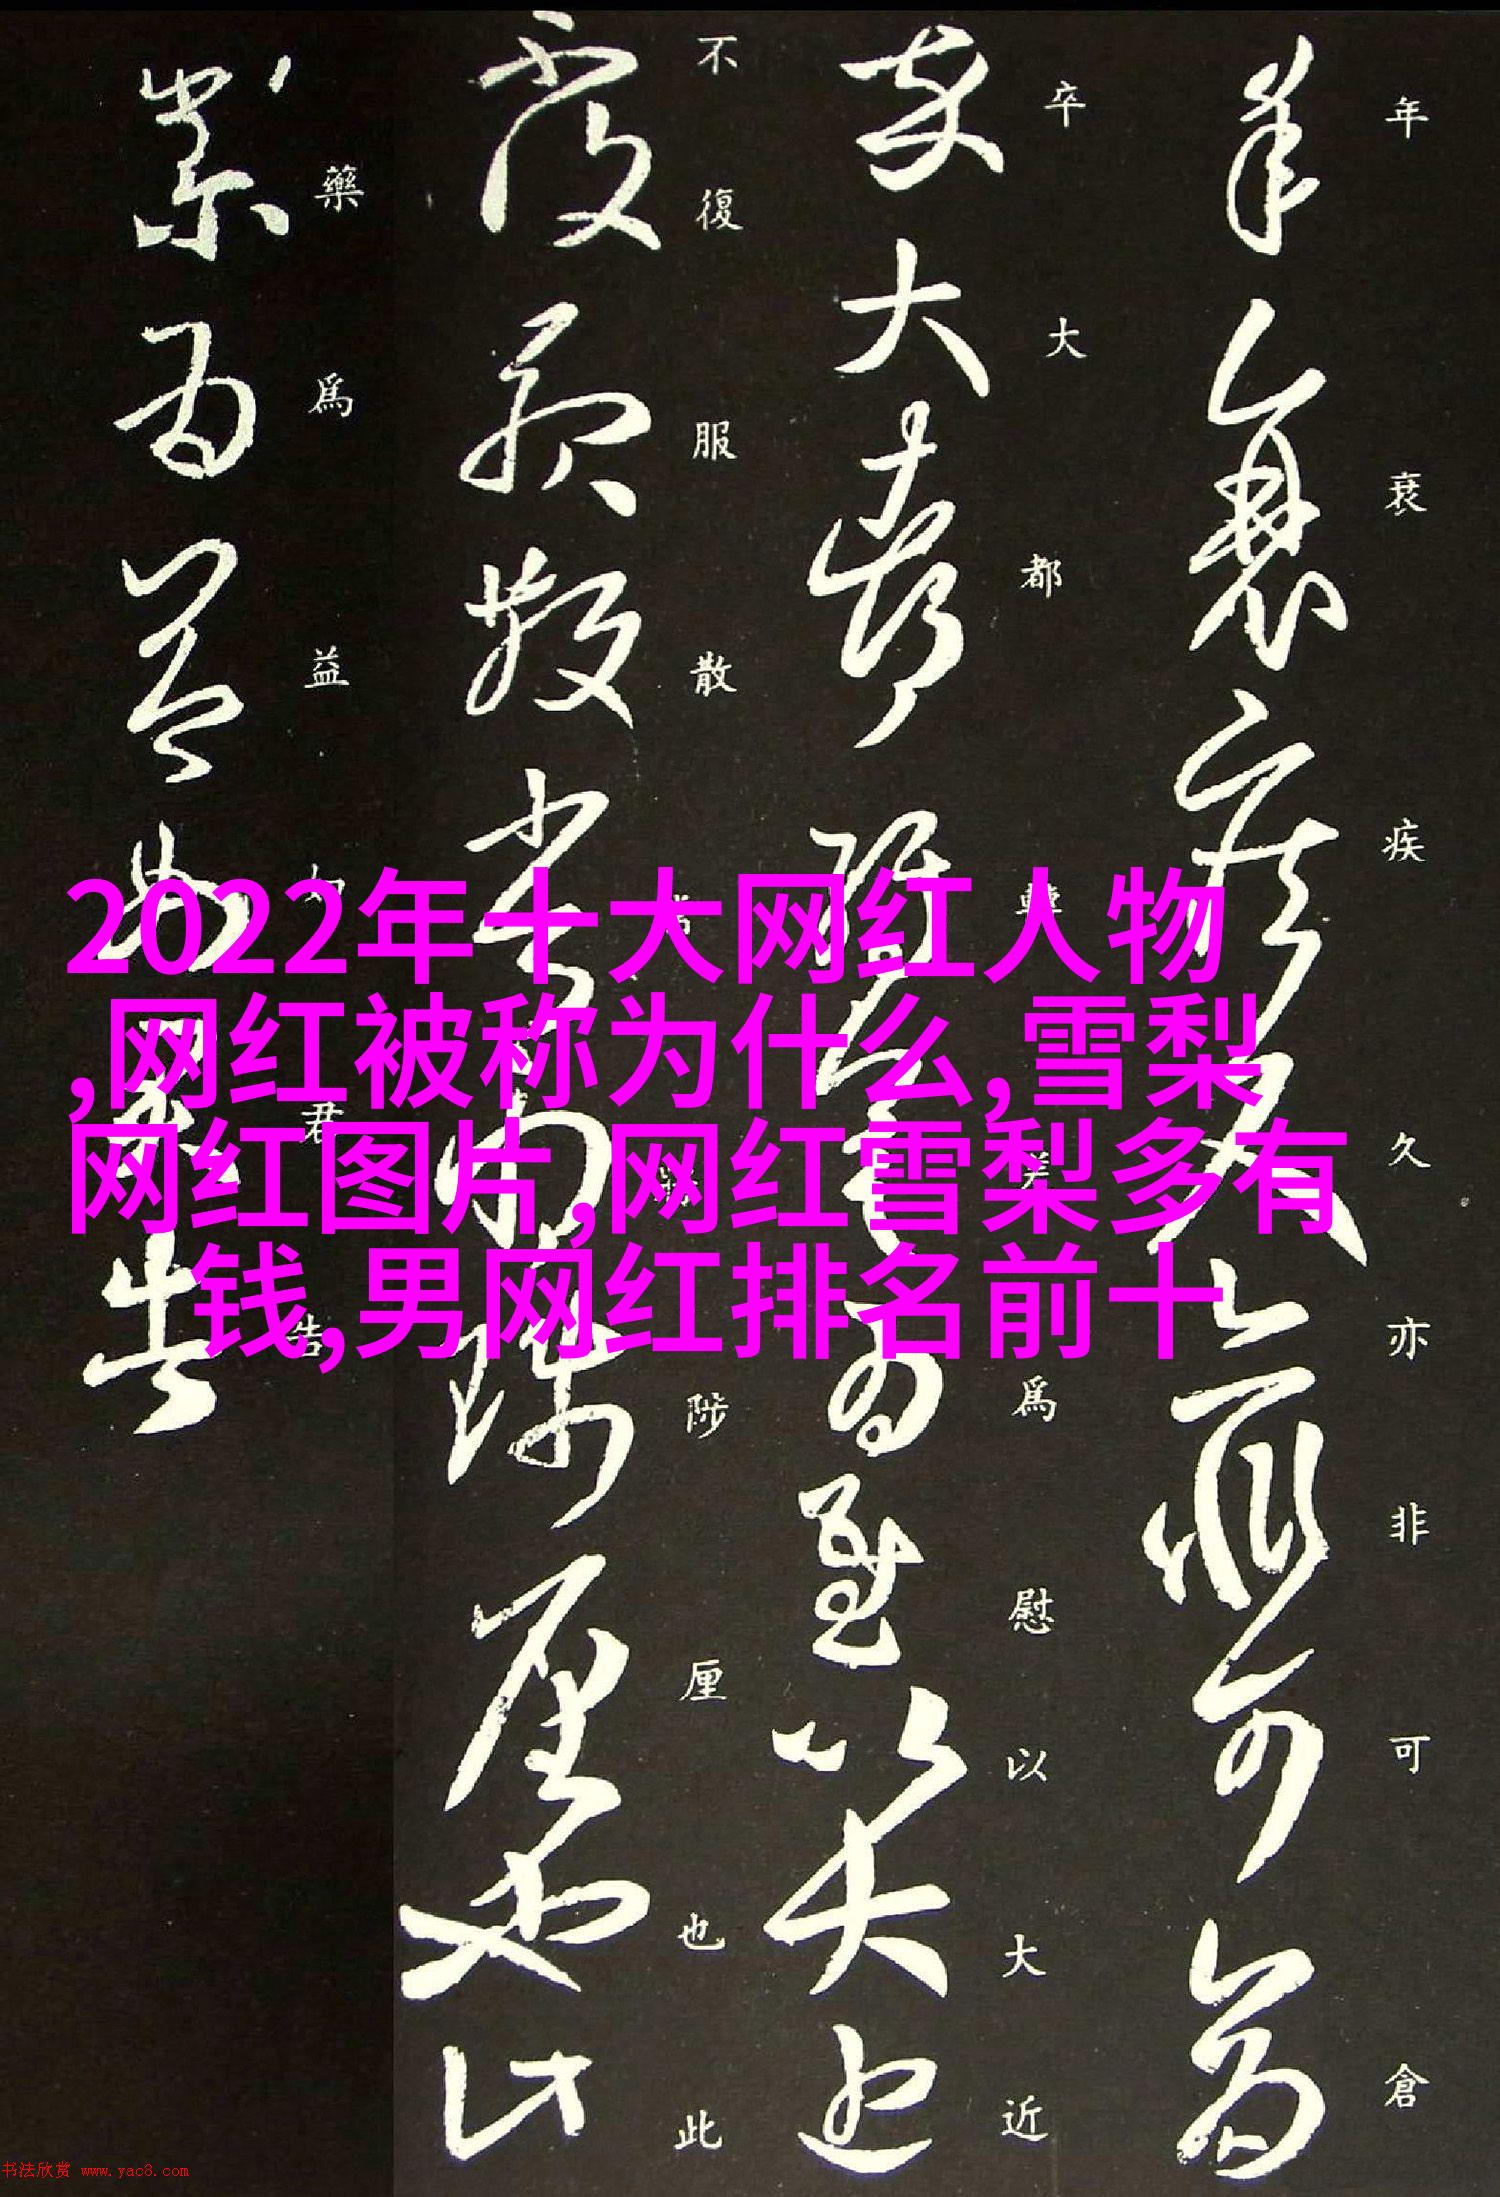 年衰疾久亦非可倉
卒大都轉差為慰以大近
不復服散常將陟厘也此
藥為益如君告
2022年十大网红人物
,网红被称为什么,雪梨
网红图片,网红雪梨多有
钱,男网红排名前十
书法欣赏 www.yac8.com